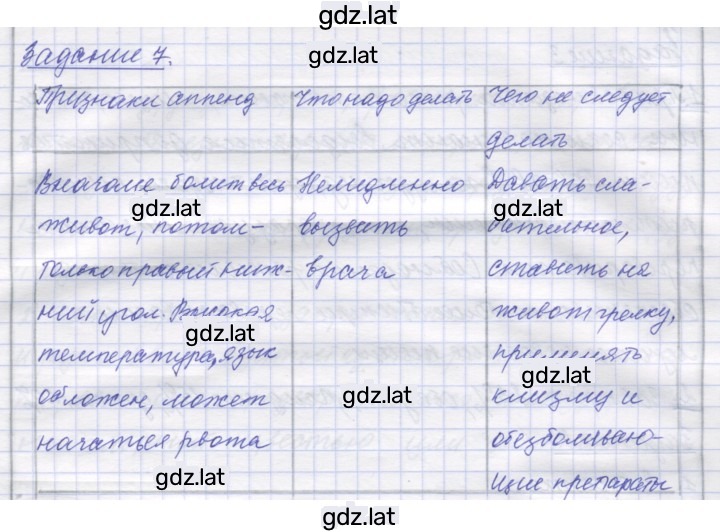 gdz.lat
Задание 7.
gdz.lat
Признаки аппенд | Что надо делать | Чего не следует
делать
Вначале болит весь | Немидленно | Давать сла-
gdz.lat gdz.lat
живот, потом- | вызвать | бительное,
только правый ниж- | врача | ставить на
ний угол. Высокая | живот грелку,
gdz.lat
температура, язык | применять
gdz.lat
обложен, может | клизму и
gdz.lat
начаться рвота | обезболиваю-
gdz.lat
щие препараты
gdz.lat